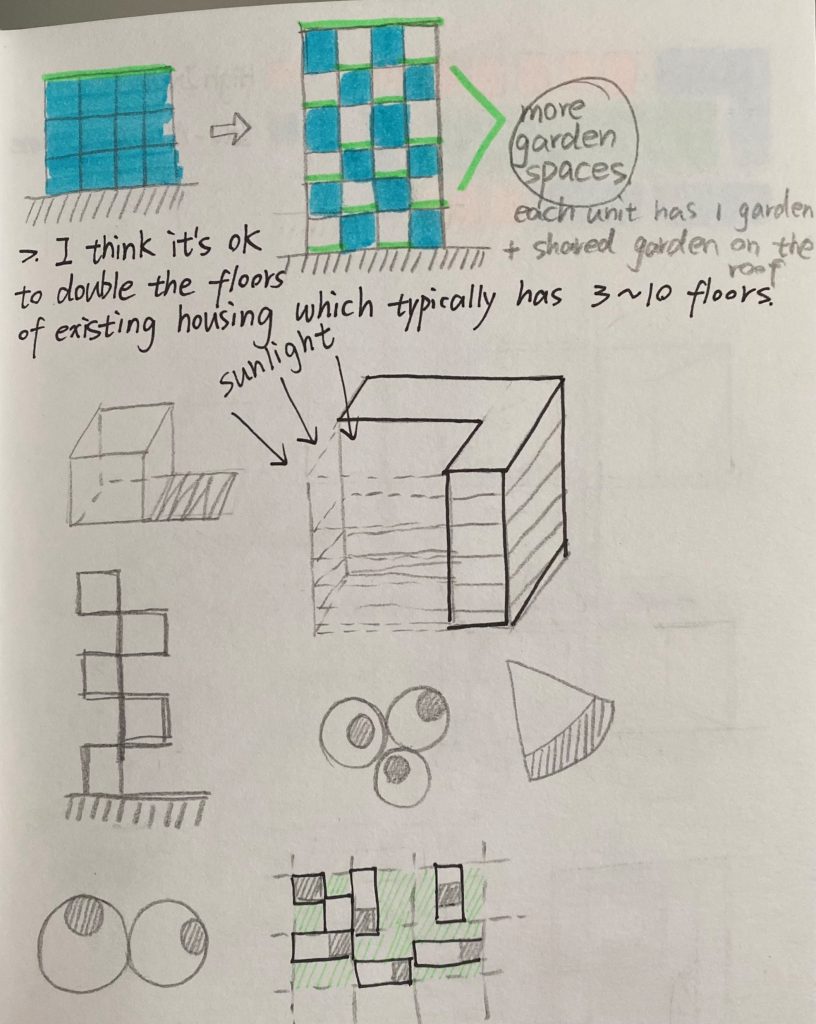 more
garden
spaces.
each unit has 1 garden
+ shared garden on the
roof
>. I think it's ok
to double the floors
of existing housing which typically has 3~10 floors.
sunlight